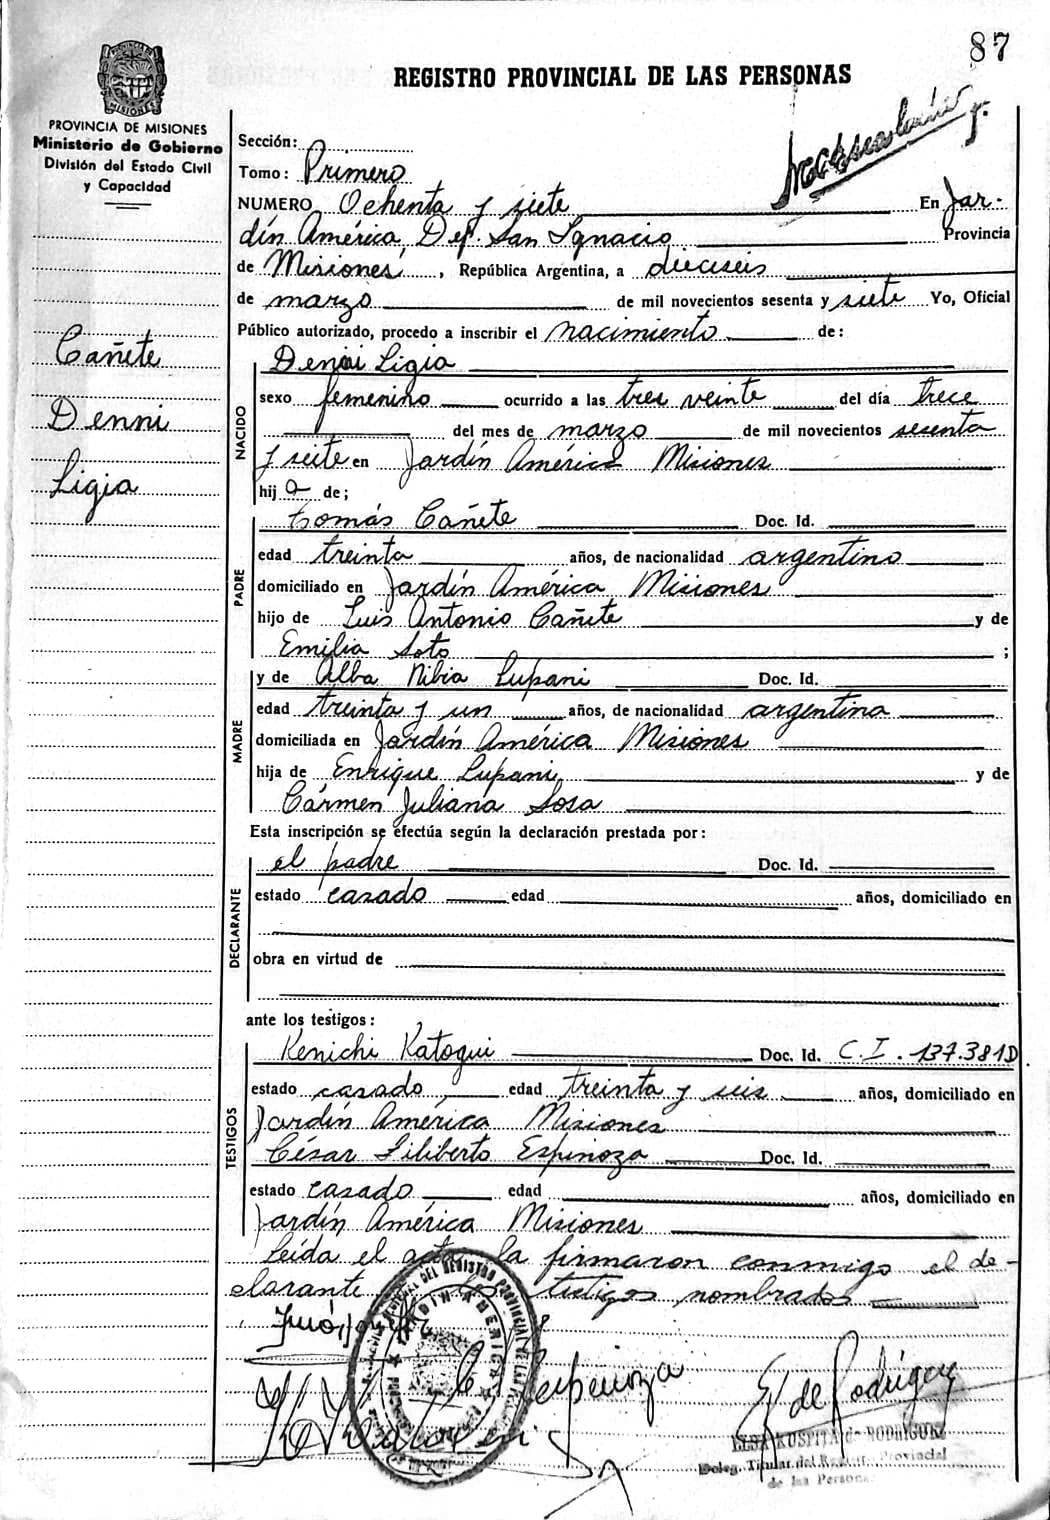 87
REGISTRO PROVINCIAL DE LAS PERSONAS
PROVINCIA DE MISIONES
Ministerio de Gobierno
División del Estado Civil
y Capacidad
Sección:
Tomo: Primero
NUMERO Ochenta y siete En Jar-
dín América, Dep. San Ignacio Provincia
de Misiones, República Argentina, a dieciseis
de marzo de mil novecientos sesenta y siete Yo, Oficial
Público autorizado, procedo a inscribir el nacimiento de:
Cañete
Denni
Ligia
NACIDO
Denni Ligia
sexo femenino ocurrido a las tres veinte del día trece
del mes de marzo de mil novecientos sesenta
y seite en Jardín América Misiones
hija de;
PADRE
Tomás Cañete Doc. Id.
edad treinta años, de nacionalidad argentino
domiciliado en Jardín América Misiones
hijo de Luis Antonio Cañete y de
Emilia Soto ;
MADRE
y de Alba Nibia Lupani Doc. Id.
edad treinta y un años, de nacionalidad argentina
domiciliada en Jardín América Misiones
hija de Enrique Lupani y de
Cármen Juliana Sosa
Esta inscripción se efectúa según la declaración prestada por:
DECLARANTE
el padre Doc. Id.
estado casado edad años, domiciliado en
obra en virtud de
ante los testigos:
TESTIGOS
Kenichi Katogui Doc. Id. C.I. 137.381D
estado casado edad treinta y seis años, domiciliado en
Jardín América Misiones
César Filiberto Espinoza Doc. Id.
estado casado edad años, domiciliado en
Jardín América Misiones
Leída el acta la firmaron conmigo el de-
clarante testigos nombrados
Espinoza
E. de Rodriguez
ELSA KUSPITA de RODRIGUEZ
Deleg. Titular del Registro Provincial
de las Personas